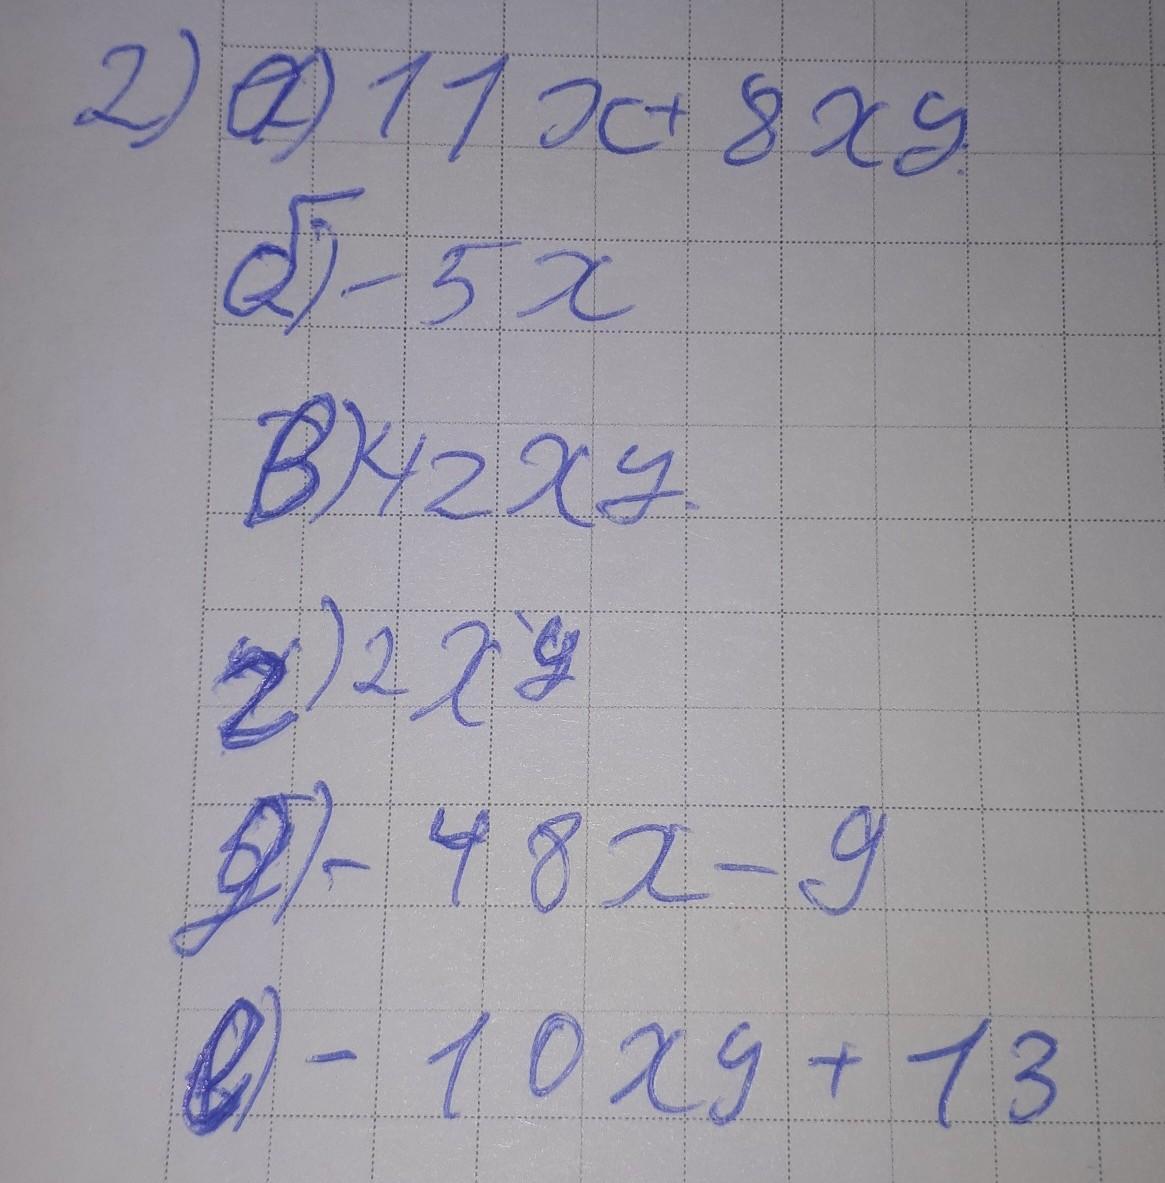 2) а) 11x + 8xy
б) - 5x
в) 42xy
г) 2xy
д) - 48x - 9
е) - 10xy + 13